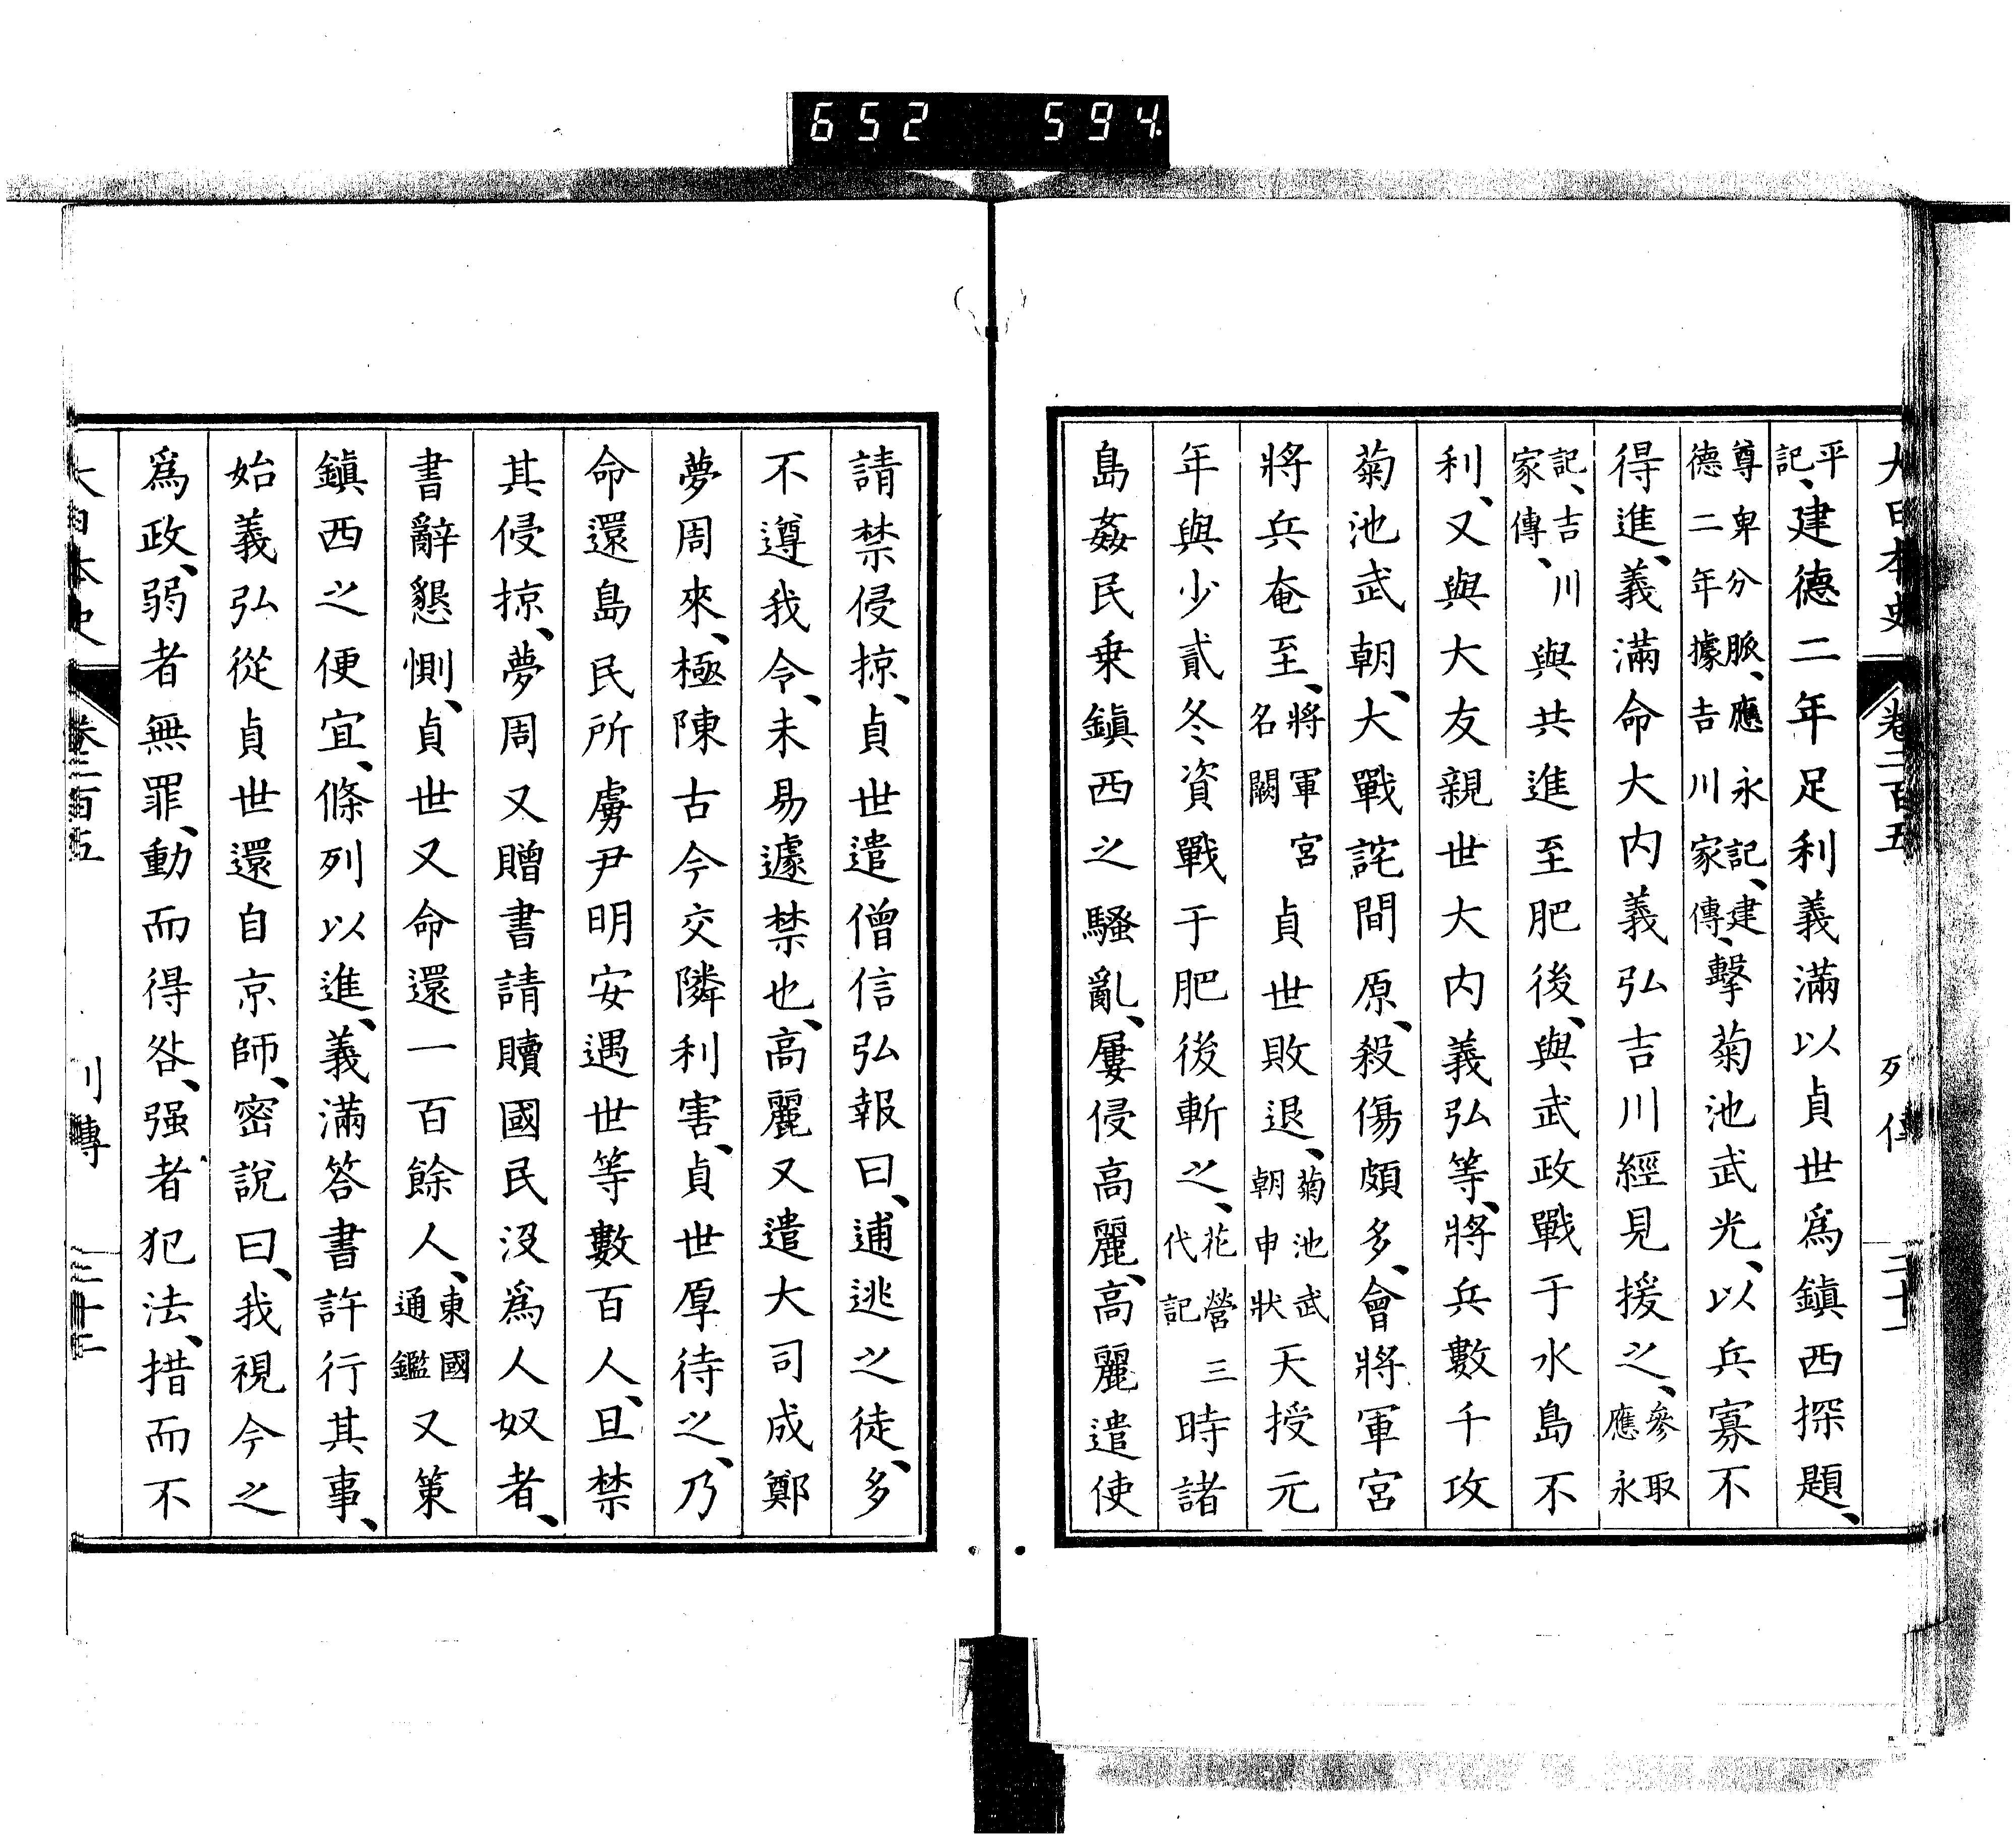 652 594
大日本史 卷二百五 列傳 二十一
平記、建德二年足利義滿以貞世爲鎭西探題、
尊卑分脈、應永記、建德二年據吉川家傳、擊菊池武光、以兵寡不
得進、義滿命大内義弘吉川經見援之、參取應永
記、吉川家傳、與共進至肥後、與武政戰于水島不
利、又與大友親世大内義弘等、將兵數千攻
菊池武朝、大戰詫間原、殺傷頗多、會將軍宮
將兵奄至、將軍宮名闕貞世敗退、菊池武朝申狀天授元
年與少貳冬資戰于肥後斬之、花營三代記時諸
島姦民乗鎭西之騷亂、屢侵高麗、高麗遣使
請禁侵掠、貞世遣僧信弘報曰、逋逃之徒、多
不遵我令、未易遽禁也、高麗又遣大司成鄭
夢周來、極陳古今交隣利害、貞世厚待之、乃
命還島民所虜尹明安遇世等數百人、且禁
其侵掠、夢周又贈書請贖國民沒爲人奴者、
書辭懇惻、貞世又命還一百餘人、東國通鑑又策
鎭西之便宜、條列以進、義滿答書許行其事、
始義弘從貞世還自京師、密說曰、我視今之
爲政、弱者無罪、動而得咎、强者犯法、措而不
大日本史 卷二百五 列傳